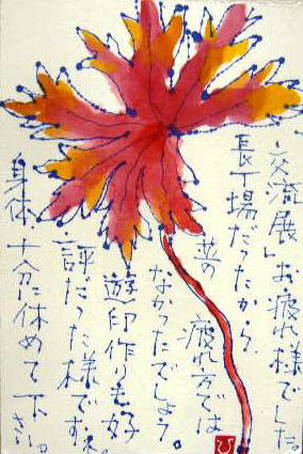 交流展」お疲れ様でした。
長丁場だったから、
並の
疲れ方では
なかったでしょう。
遊印作りも好
評だった様ですネ。
身体、十分に休めて下
さい。
ひ